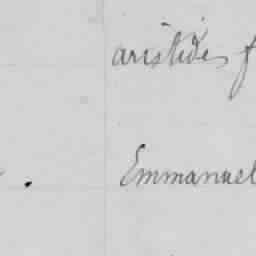 aristides f
. Emmanuel